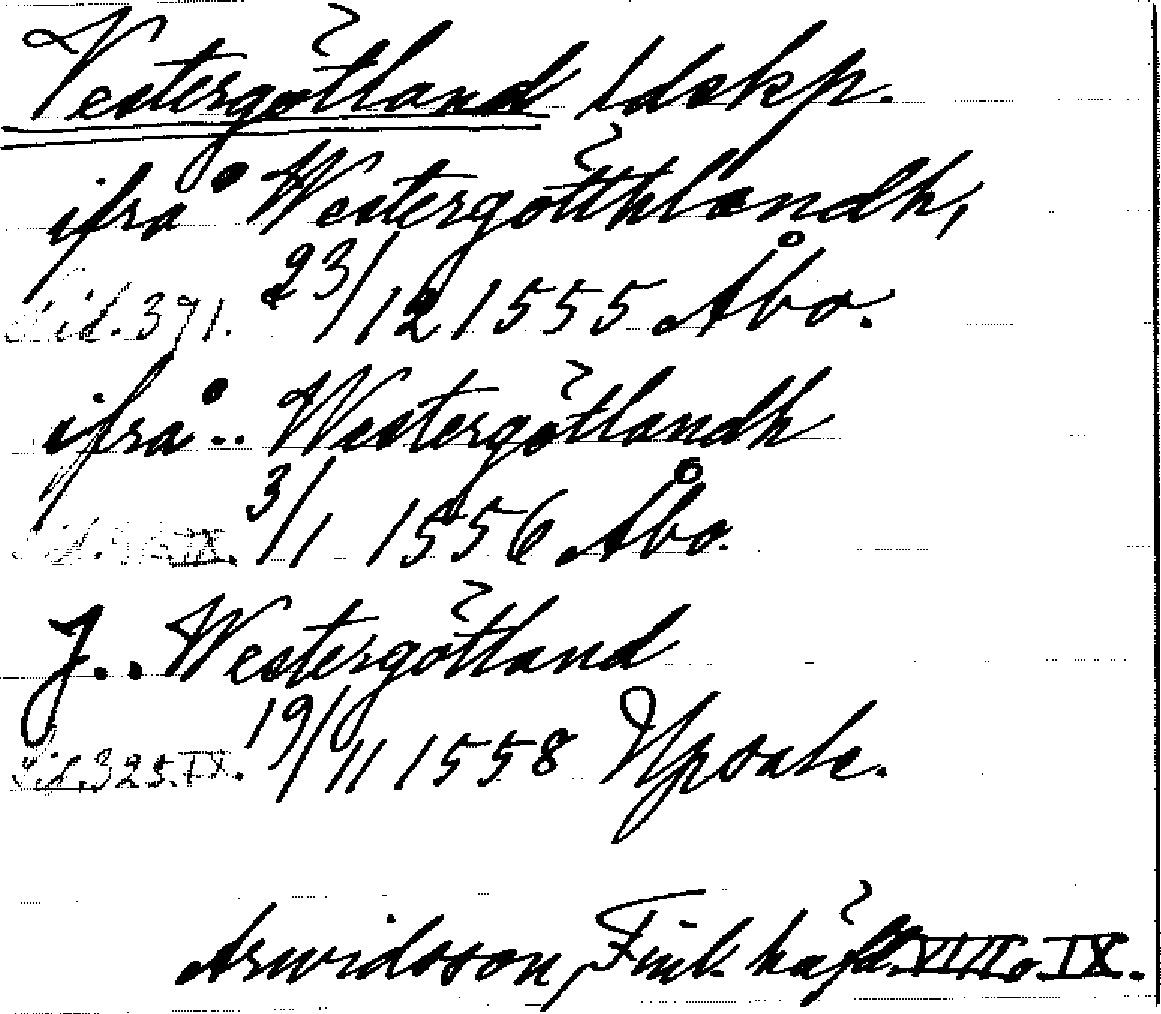 Vestergötland ldskp.
ifrå Westergötthlandh,
Sid. 371. 23/12 1555 Åbo.
ifrå .. Westergötlandh
Sid. IX. 3/1 1556 Åbo.
J. . Westergötland
Sid. 325. IX. 19/11 1558 Upsale.
Arwidsson, Finl. häfd. VIII o. IX.